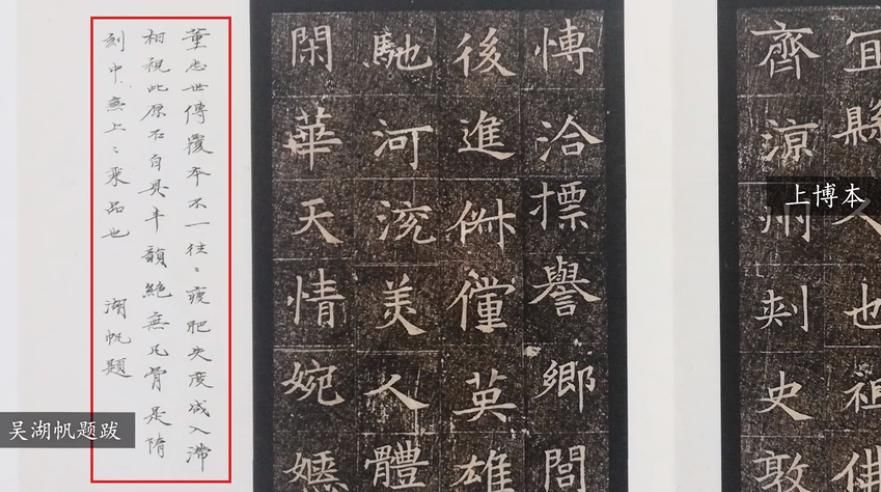 宜縣人也祖佛
齊涼州刺史敦
愽洽摽譽鄉閭
後進俶儻英雄
馳河渷美人體
閑華天情婉嫕
董志世傳覆本不一往〻瘦肥失度或入滯
相視此原石自具丰韻絶無凡骨是隋
刻中無上〻乘品也 湖帆題
上博本
吴湖帆题跋